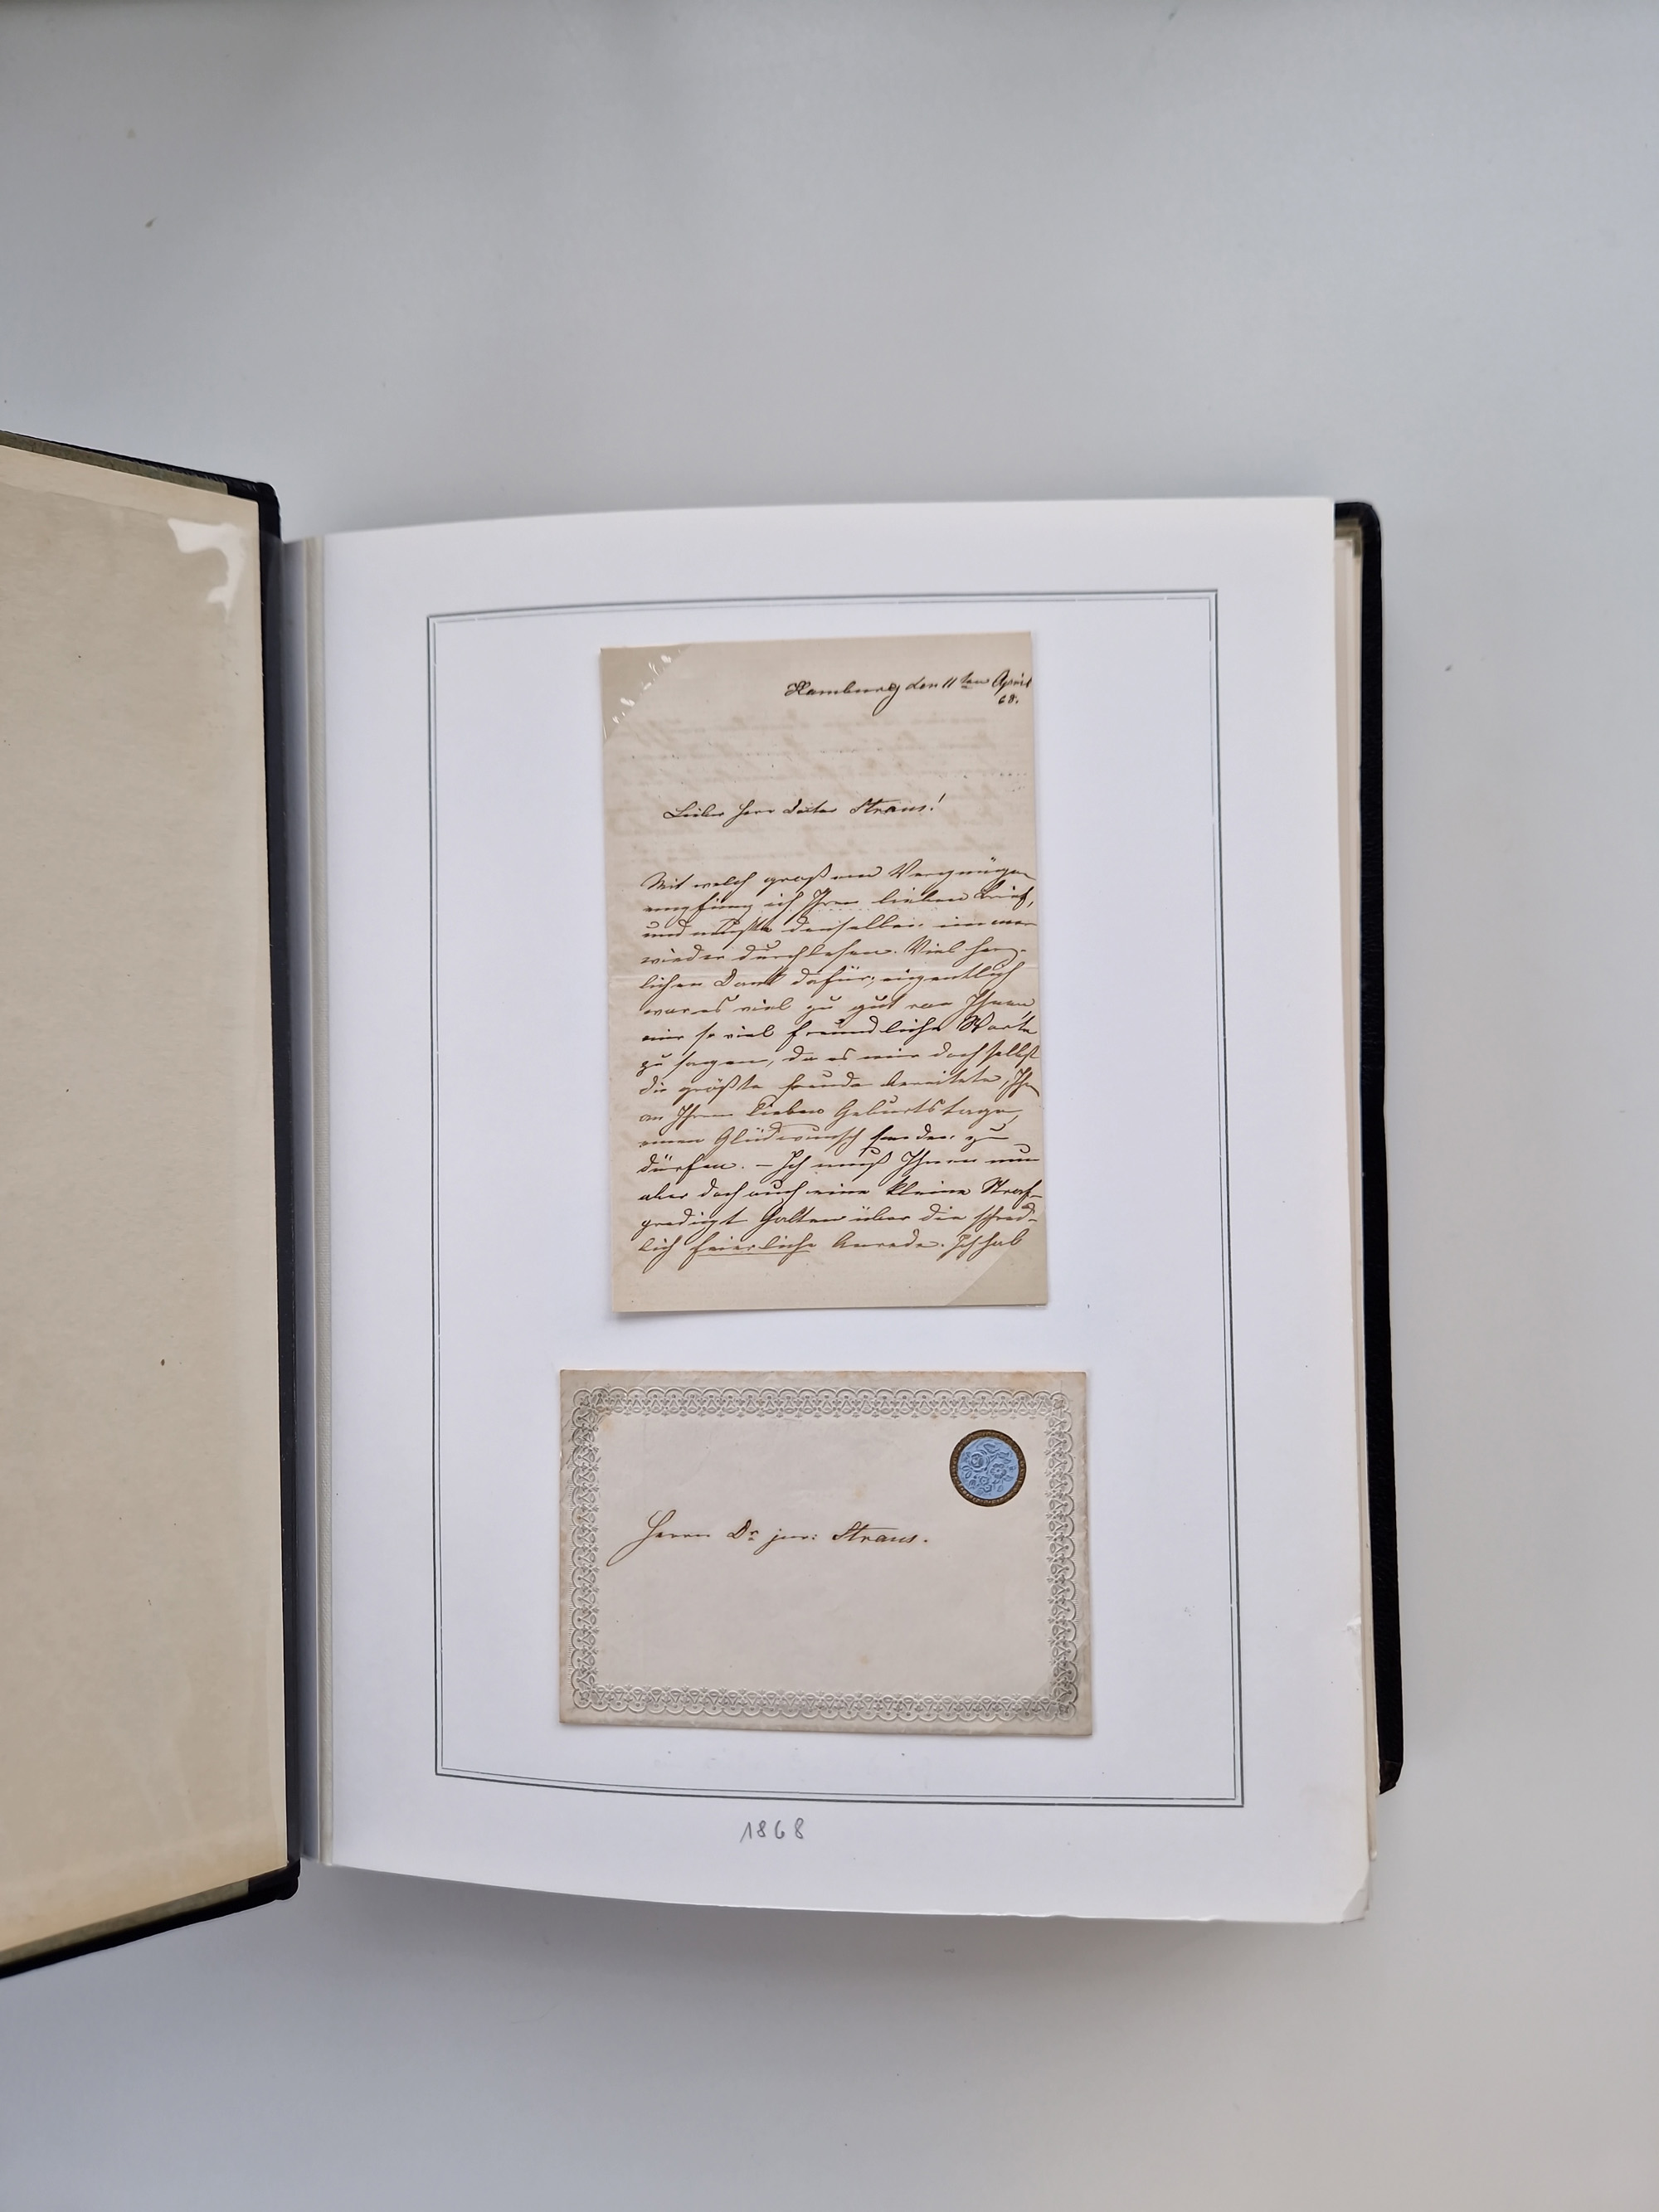 Hamburg den 11ten April
68.
Lieber Herr Doctor Straus!
Mit welch großem Vergnügen
empfing ich Ihren lieben Brief,
und mußte denselben immer
wieder durchlesen. Viel herz-
lichen Dank dafür; eigentlich
war es viel zu gut von Ihnen
mir so viel freundliche Worte
zu sagen, da es mir doch selbst
die größte Freude bereitete,
an Ihrem lieben Geburtstage,
einen Glückwunsch senden zu
dürfen. – Ich muß Ihnen nun
aber doch auch eine kleine Straf-
predigt halten über die schreck-
lich feierliche Anrede. Ich hab
Herrn Dr jur: Straus.
1868